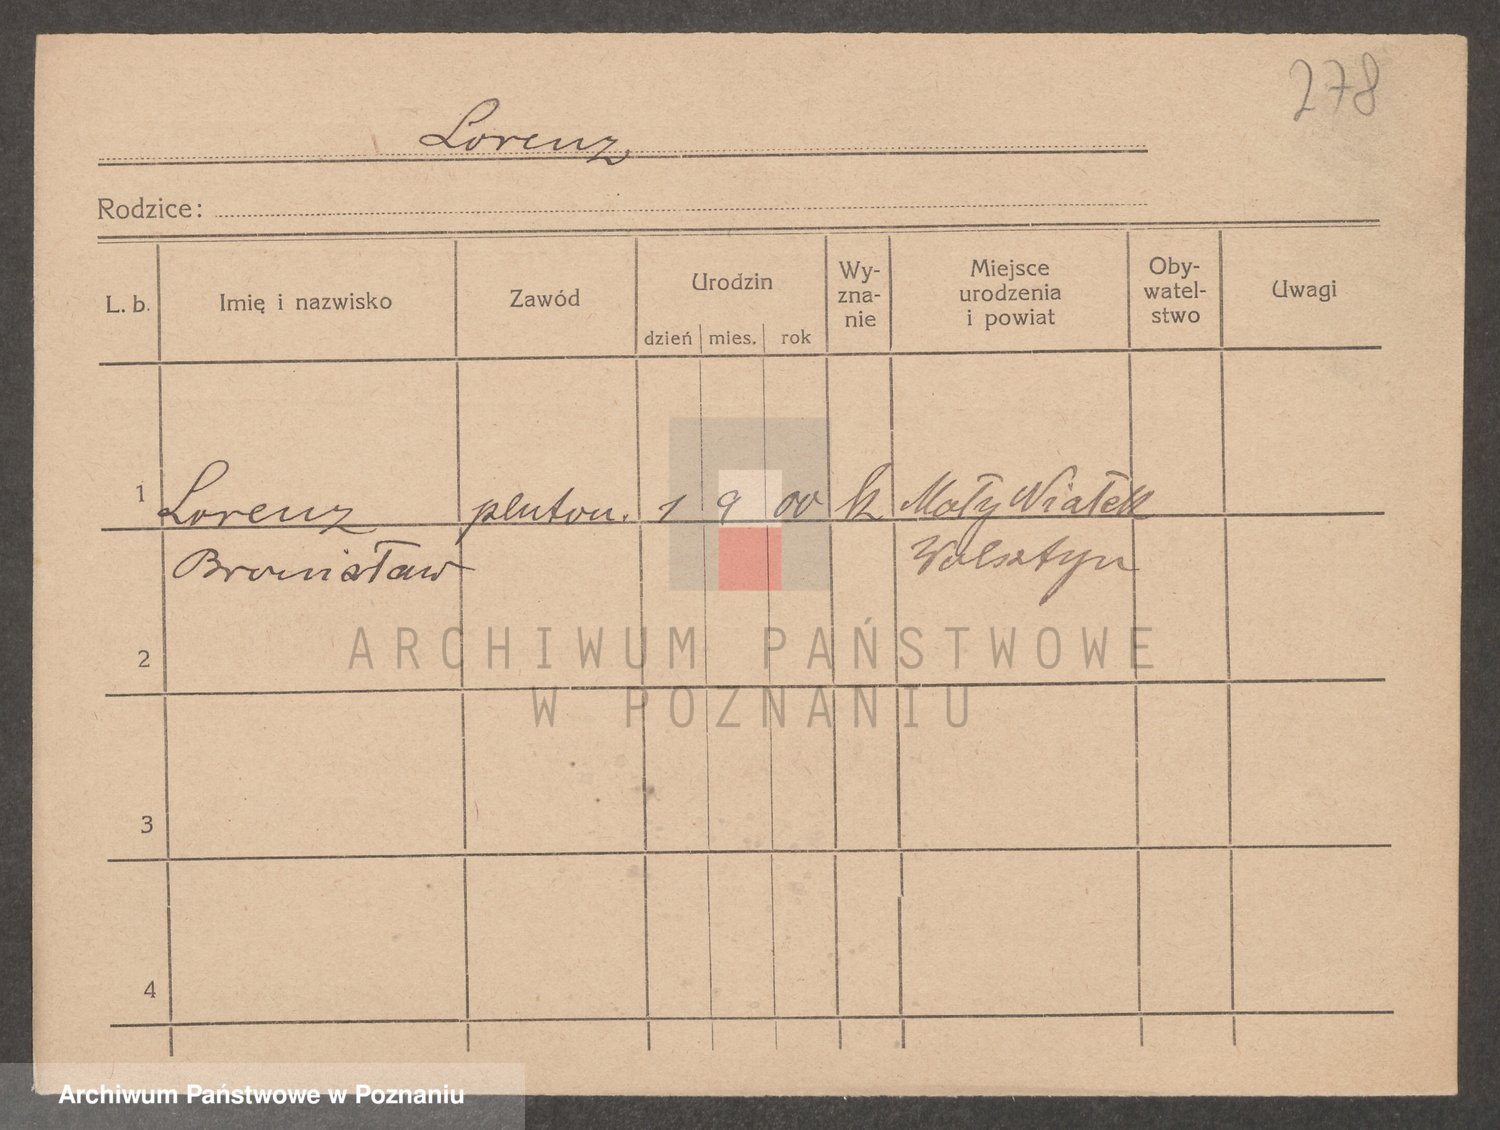 278
Lorenz
Rodzice:
L. b.
Imię i nazwisko
Zawód
Urodzin
dzień mies. rok
Wy-
zna-
nie
Miejsce
urodzenia
i powiat
Oby-
watel-
stwo
Uwagi
1 Lorenz pluton. 1 9 00 k Mały Wiałek
Bronisław Wolsztyn
2
3
4
ARCHIWUM PAŃSTWOWE
W POZNANIU
Archiwum Państwowe w Poznaniu